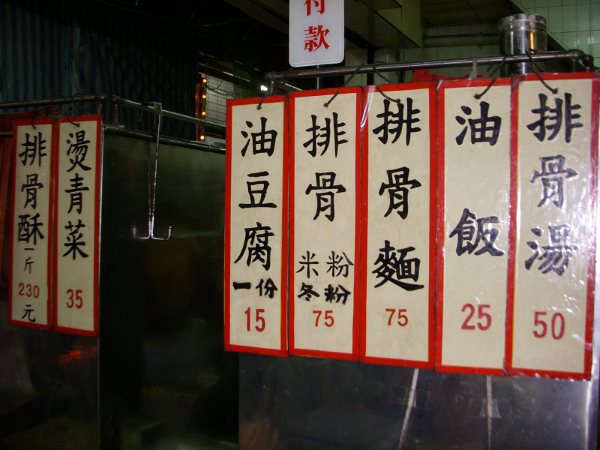 付
款
排骨酥一斤
230
元
燙青菜
35
油豆腐
一份
15
排骨
米粉
冬粉
75
排骨麵
75
油飯
25
排骨湯
50